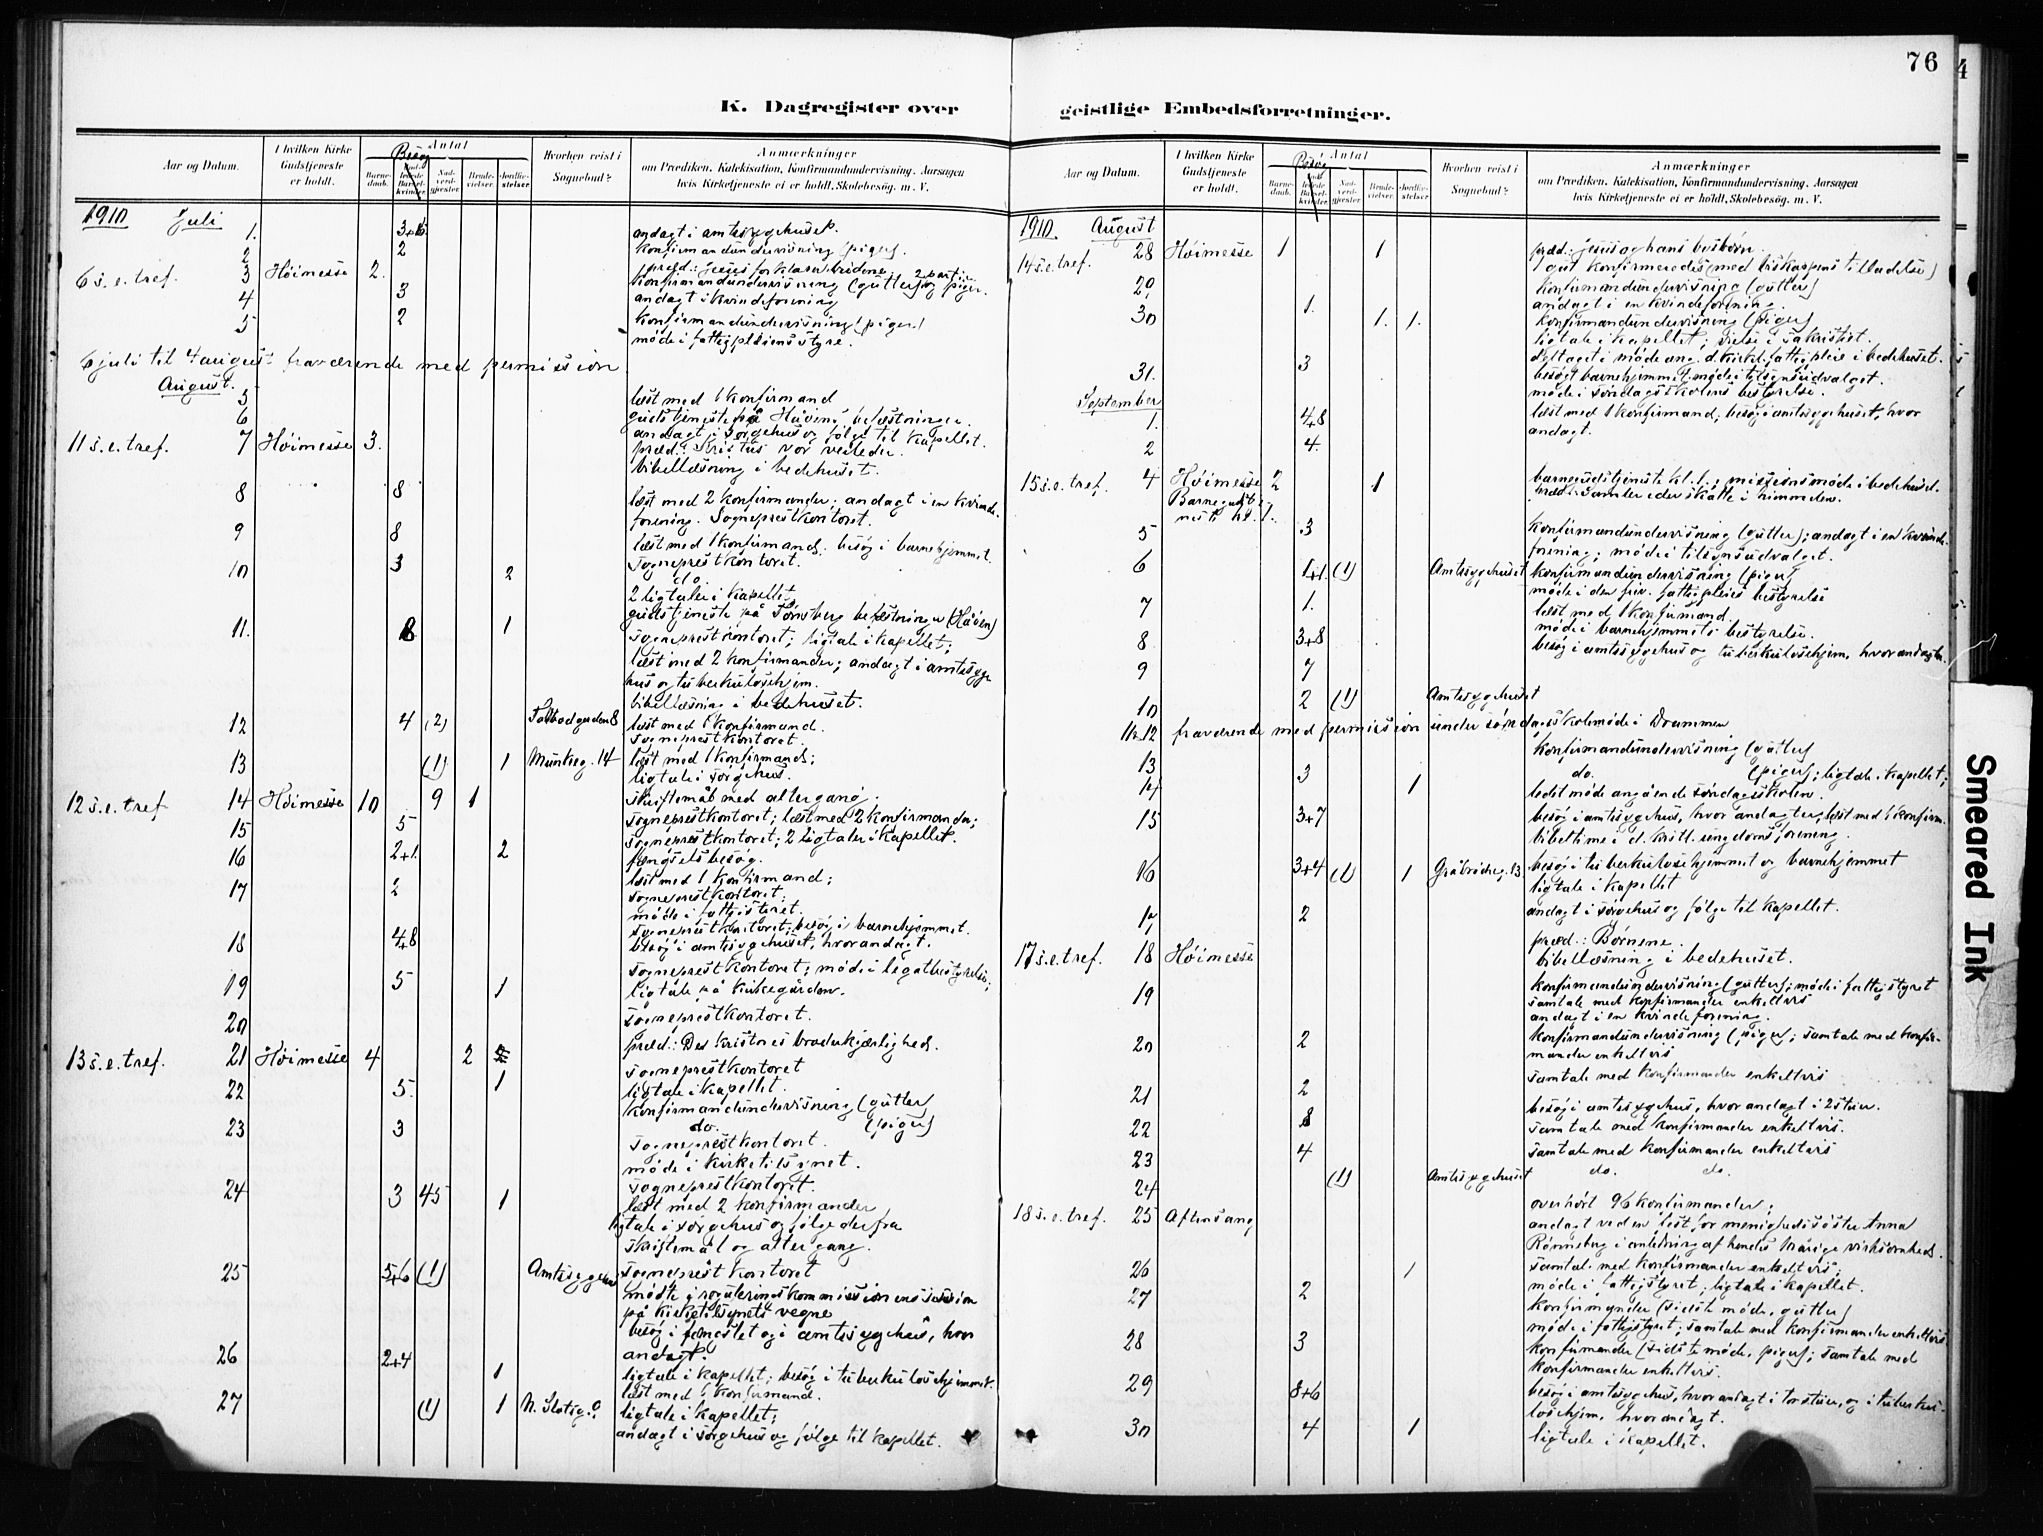 76
K. Dagregister over geistlige Embedsforretninger.
Aar og Datum.
I hvilken Kirke Gudstjeneste er holdt.
Antal
Besøg
Barnedaab.
Nadverdgjester.
Brudevielser.
Jordfæstelser.
Hvorhen reist i Sognebud?
Anmærkninger
om Prædiken, Katekisation, Konfirmandundervisning, Aarsagen
hvis Kirketjeneste ei er holdt, Skolebesøg. m. V.
1910 Juli
1. andagt i amtssygehuset.
2 2 konfirmandundervisning (piger).
6 s. e. tref. 3 Høimesse 2. præd.: Jesus forklaret
konfirmandundervisning (gutter) og piger.
4 3 andagt i kvindeforening
5 2 konfirmandundervisning (piger)
møde i fattigpleiens styre.
6 juli til 4 august fraværende med permission
August.
5 læst med 1 konfirmand
6 gudstjeneste på Håøens befæstninger.
andagt i sørgehus og følge til kapellet.
11 s. e. tref. 7 Høimesse 3. præd.: Kristus vor veileder.
bibellæsning i bedehuset.
8 8 læst med 2 konfirmander; andagt i en kvinde-
forening. Sogneprestkontoret.
9 8 læst med 1 konfirmand. besøg i barnehjemmet.
sogneprestkontoret.
10 3 2 do.
2 ligtaler i kapellet
gudstjeneste på Tønsberg befæstninger (Håøen)
11. 8 1 sogneprestkontoret; ligtale i kapellet;
læst med 2 konfirmander; andagt i amtssyge
hus og tuberkulosehjem.
bibellæsning i bedehuset.
12 4 (2) Tolbodgaden 8 læst med 1 konfirmand.
sogneprestkontoret.
13 (1) 1 Munkeg. 14 læst med 1 konfirmand;
ligtale i sørgehus.
12 s. e. tref 14 Høimesse 10 9 1 skriftemål med altergang.
15 5 sogneprestkontoret; læst med 2 konfirmander;
16 2+1. 2 sogneprestkontoret; 2 ligtaler i kapellet.
fængselsbesøg.
17 2 læst med 1 konfirmand;
sogneprestkontoret.
møde i fattigstyret.
sogneprestkontoret; besøg i barnehjemmet.
18 4+8 besøg i amtssygehuset, hvor andagt.
19 5 1 sogneprestkontoret; møde i legatbestyrelse;
ligtale på kirkegården.
20 sogneprestkontoret.
13 s. e. tref. 21 Høimesse 4 2 præd.: Den kristnes broderkjærlighed.
22 5. 1 sogneprestkontoret
ligtale i kapellet.
konfirmandundervisning (gutter
23 3 do. (piger)
sogneprestkontoret.
møde i kirketilsynet.
24 3 45 1 sogneprestkontoret.
læst med 2 konfirmander
ligtale i sørgehus og følge derfra
skriftemål og altergang.
25 5+6 (1) Amtssygehus sogneprestkontoret
mødte i reguleringskommissionens session
på kirketilsynets vegne
besøg i fængslet og i amtssygehus, hvor
andagt.
26 2+4 1 ligtale i kapellet; besøg i tuberkulosehjemmet.
læst med 1 konfirmand.
27 (1) 1 N. Slotsg. ligtale i kapellet;
andagt i sørgehus og følge til kapellet.
Aar og Datum.
I hvilken Kirke Gudstjeneste er holdt.
Antal
Besøg
Barnedaab.
Nadverdgjester.
Brudevielser.
Jordfæstelser.
Hvorhen reist i Sognebud?
Anmærkninger
om Prædiken, Katekisation, Konfirmandundervisning, Aarsagen
hvis Kirketjeneste ei er holdt, Skolebesøg. m. V.
1910. August
14 s. e. tref. 28 Høimesse 1 1 præd.: Jesus og hans
1 gut konfirmeredes (med biskopens tilladelse)
29 konfirmandundervisning (gutter)
1. andagt i en kvindeforening.
30 1. 1. konfirmandundervisning (piger)
ligtale i kapellet; vielse i sakristiet.
deltaget i møde ang. d. kirkel. fattigpleie i bedehuset.
31. 3 besøgt barnehjemmet. møde i tilsynsudvalget.
møde i søndagsskolens bestyrelse.
September
1. 4+8 læst med 1 konfirmand; besøg i amtssygehuset, hvor
andagt.
2 4.
15 s. e. tref. 4 Høimesse 2 1 barnegudstjeneste kl. 1; missionsmøde i bedehuset.
Barnegudstje- præd.: Samler eder skatte i himmelen.
neste kl. 1.
5 3 konfirmandundervisning (gutter); andagt i en kvinde-
forening; møde i tilsynsudvalget.
6 1+1 (1) Amtssygehuset konfirmandundervisning (piger)
møde i den priv. fattigpleies bestyrelse
7 1. læst med 1 konfirmand.
møde i barnehjemmets bestyrelse.
8 3+8 besøg i amtssygehus og tuberkulosehjem, hvor andagter.
9 7
10 2 (1) Amtssygehuset
11-12 fraværende med permission under søndagsskolemøde i Drammen
13 konfirmandundervisning (gutter)
14 3 1 do. (piger); ligtale i kapellet;
ledet møde angående søndagsskolen.
15 3+7 besøg i amtssygehus, hvor andagter; læst med 1 konfirm.
bibeltime i d. kristl. ungdomsforening.
16 3+4 (1) 1 Gråbrødreg. 13 besøg i tuberkulosehjemmet og barnehjemmet
ligtale i kapellet
17 2 andagt i sørgehus og følge til kapellet.
17 s. e. tref. 18 Høimesse præd.: Børnene.
bibellæsning i bedehuset.
19 konfirmandundervisning (gutter); møde i fattigstyret
samtale med konfirmander enkeltvis
andagt i en kvindeforening.
20 2 konfirmandundervisning (piger); samtale med konfir-
mander enkeltvis
21 2 samtale med konfirmander enkeltvis
22 8 besøg i amtssygehus, hvor andagt i 2 stuer.
samtale med konfirmander enkeltvis.
23 4 samtale med konfirmander enkeltvis
24 (1) Amtssygehuset do. do.
18 s. e. tref. 25 Aftensang overhørt 96 konfirmander;
andagt ved en fest for menighedssøster Anna
Rønneberg i anledning af hendes virksomhed.
26 1 samtale med konfirmander enkeltvis;
møde i fattigstyret; ligtale i kapellet.
27 2 konfirmander (sidste møde, gutter)
møde i fattigstyret; samtale med konfirmander enkeltvis
28 3 konfirmander (sidste møde, piger); samtale med
konfirmander enkeltvis.
29 8+6 besøg i amtssygehus, hvor andagt i to stuer, og i tuberku-
losehjem, hvor andagt.
30 4 1 ligtale i kapellet.
Smeared Ink